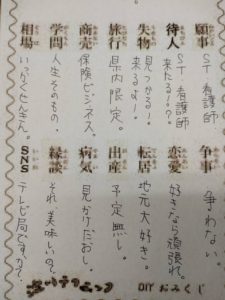 願事 ST 看護師
待人 ST 看護師 来たる!?。
失物 見つかる! 来るよ!
旅行 県内限定。
商売 保険ビジネス、
学問 人生そのもの。
相場 いっかくせんきん。
争事 争わない。
恋愛 好きなら頑張れ。
転居 地元大好き。
出産 予定無し。
病気 見かけだおし。
縁談 それ、美味しいの?
SNS テレビ局ですか?
DIY おみくじ